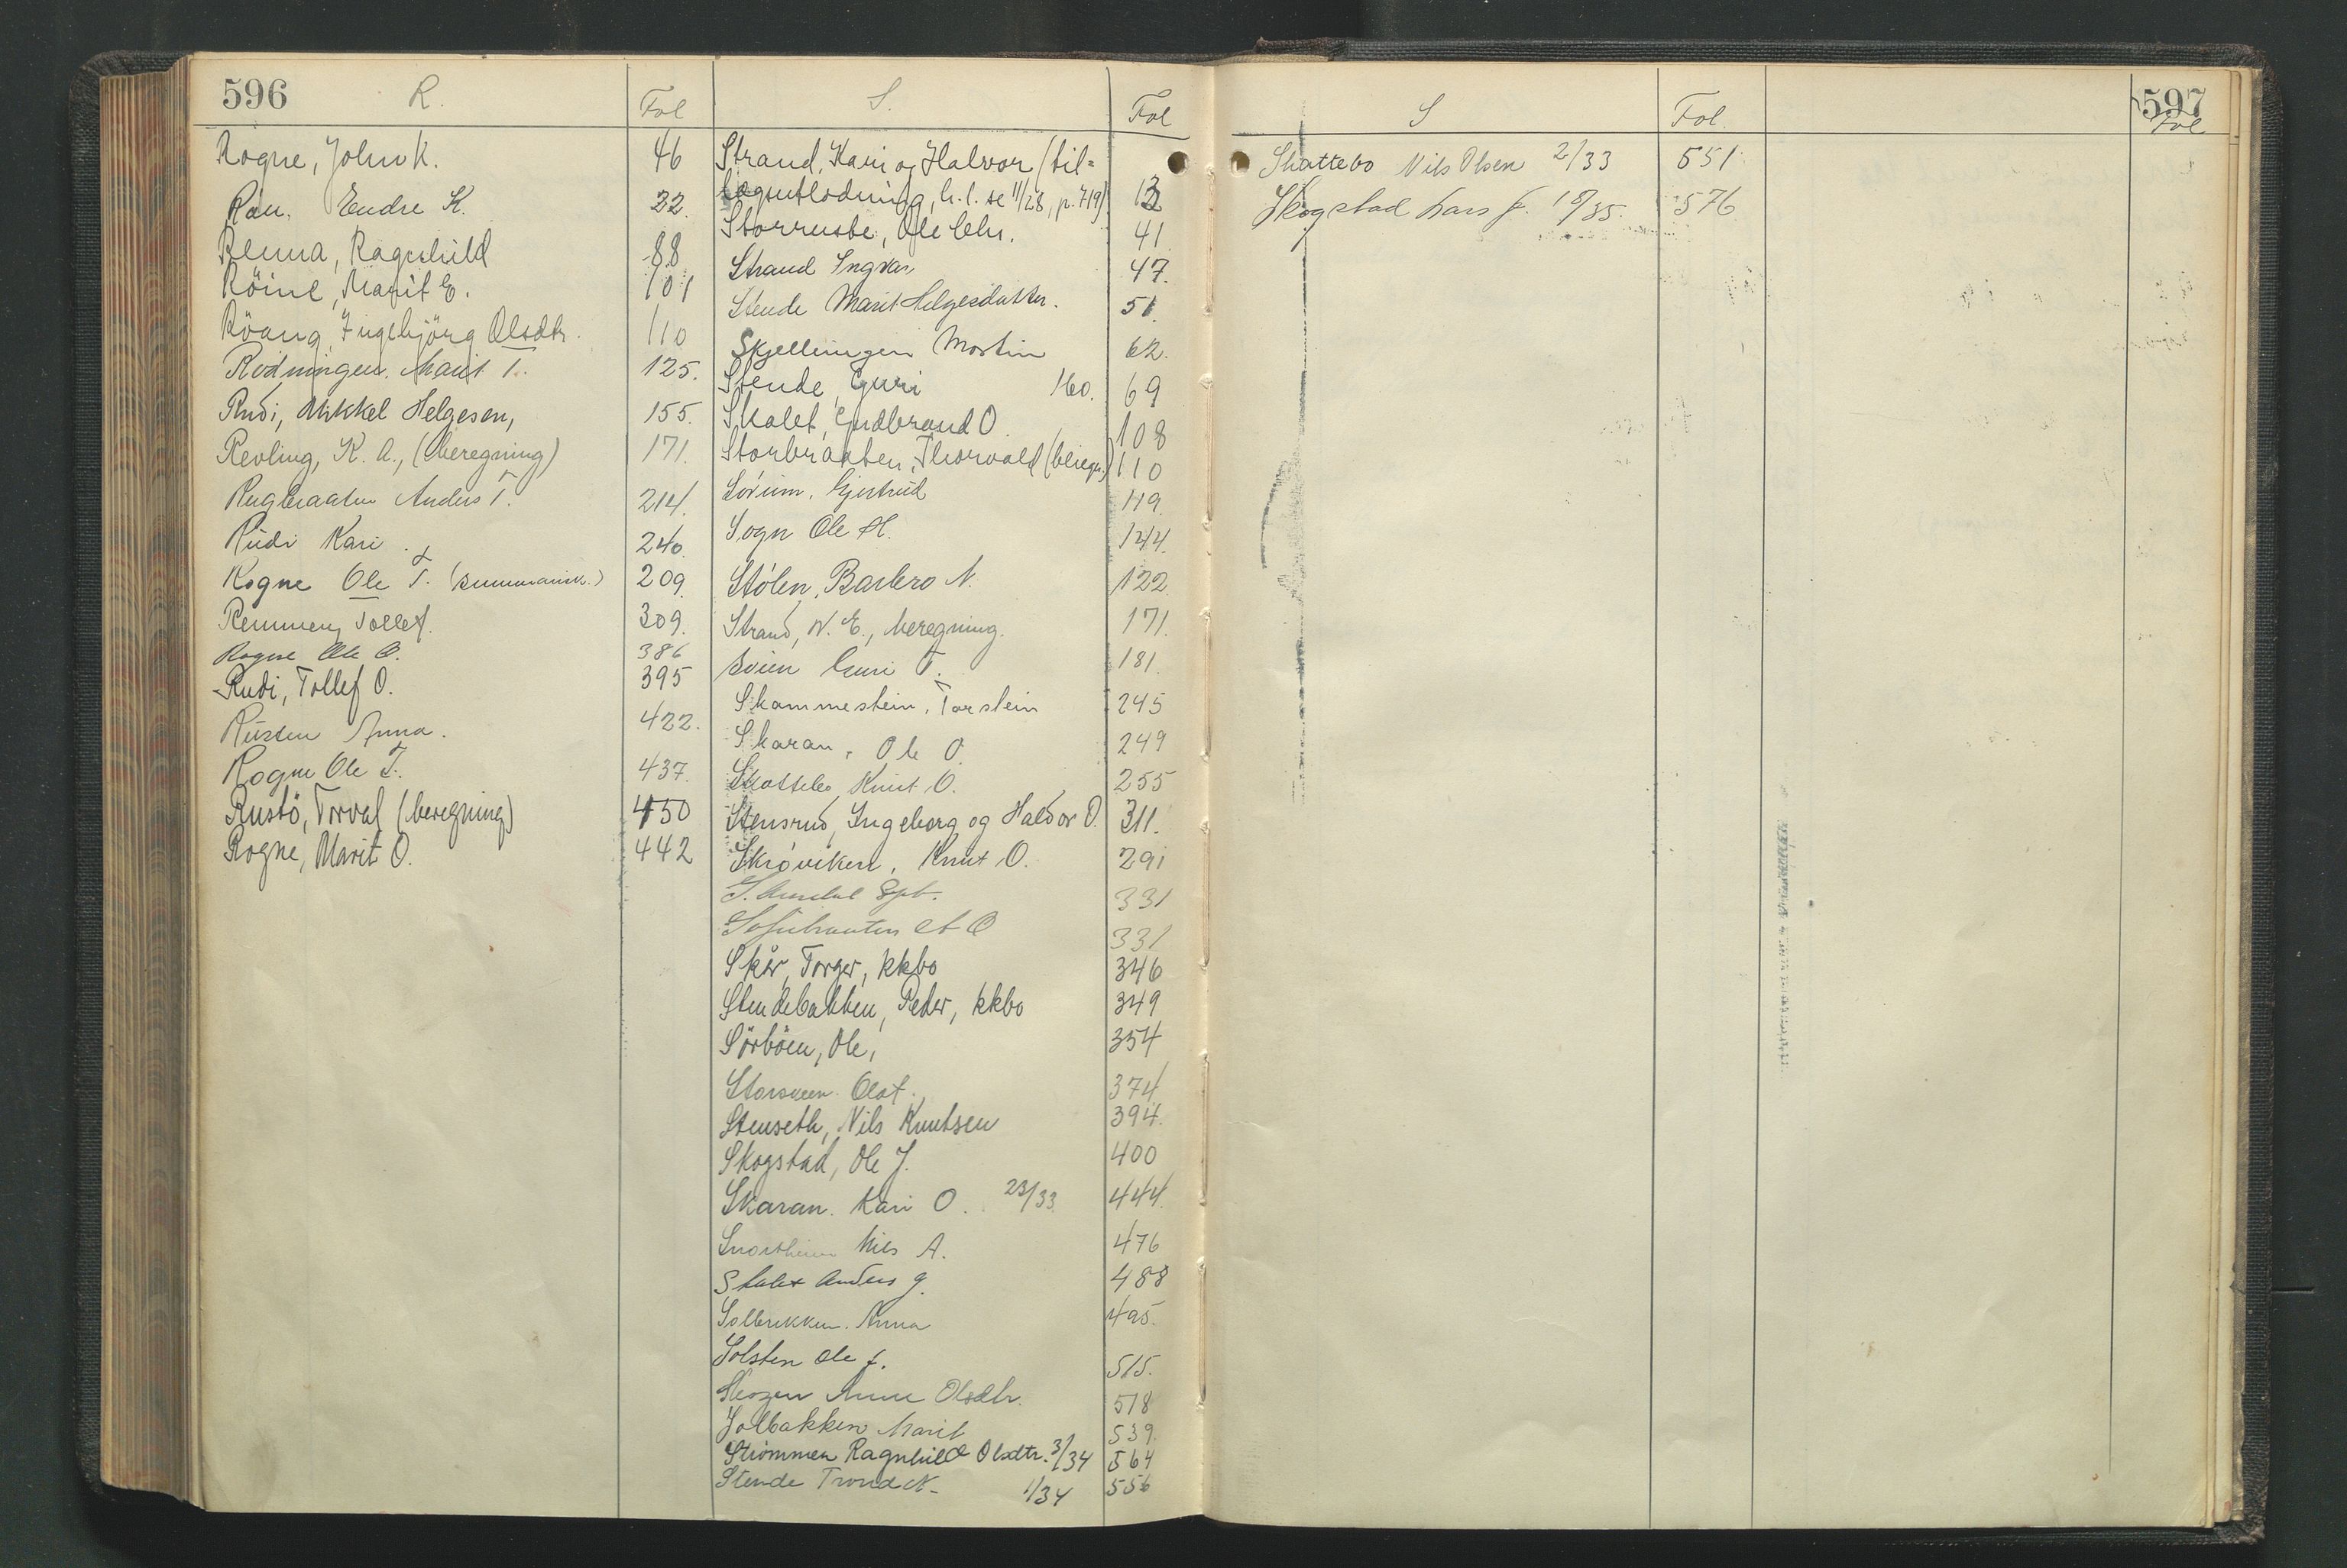 596
R.
Fol
Rogne, John K. 46
Rau. Endre K. 22.
Renna, Ragnhild 88
Röine, Marit E. 101
Röang, Ingebjörg Olsdtr. 110
Rödningen. Marit T. 125.
Rudi, Mikkel Helgesen, 155.
Revling, K. A., (beregning) 171.
Rugbraaten Anders T. 214.
Rudi Kari 240.
Rogne Ole T. (summarisk.) 209.
Remmen, Tollef. 309.
Rogne Ole O. 386
Rudi, Tollef O. 395
Rusten Anna. 422.
Rogne Ole T. 437.
Rustö, Torval (beregning) 450
Rogne, Marit O. 442
S.
Fol
Strand, Kari og Halvor (til=
lægsutlodning, h. l. se 11/28, p. 719)
Storruste, Ole Chr. 41
Strand Ingvar 47.
Stende Marit Helgesdatter. 51.
Skjellingen Martin 62.
Stende, Guri 160. 69
Skalet, Gudbrand O. 108
Storbraaten, Thorvald (beregn.) 110
Sørum. Gjertrud 119.
Sogn Ole H. 144.
Stölen, Barbro N. 122
Strand, N. E., beregning. 171.
Svien Guri T. 181.
Skammestein, Torstein 245
Skaran, Ole O. 249
Skattebo Knut O. 255
Stensrud, Ingeborg og Haldor O. 311.
Skrøviken, Knut O. 291
331
331
Skår, Torger, kkbo 346
Stendebakken, Peder, kkbo 349
Sörböen, Ole, 354
Storsveen Olaf. 374
Stenseth, Nils Knutsen 394.
Skogstad, Ole J. 400
Skaran. Kari O. 23/33. 444.
Snortheim Nils A. 476
Skalet Anders G. 488
Solbrekken. Anna 495.
Solsten Ole J. 515.
Skogen Anne Olsdtr. 518
Solbakken Marit 539.
Strömmen Ragnhild Olsdtr. 3/34 564
Stende Trond N. 1/34 556
597
S
Fol.
Fol
Skattebo Nils Olsen 2/33 551
Skogstad Lars J. 18/35. 576